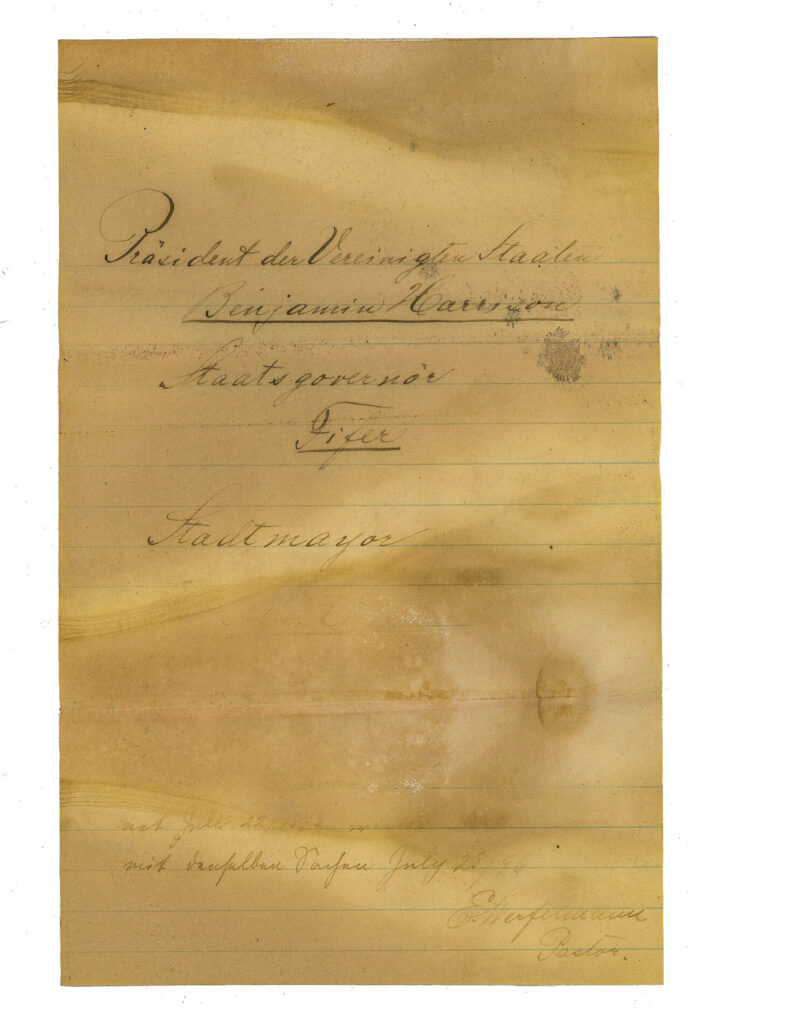 Präsident der Vereinigten Staaten
Benjamin Harrison
Staatsgovernör
Fifer
Stadtmayor
Juli 22
mit denselben Sachen July 28/96
E. Werfelmann
Pastor.